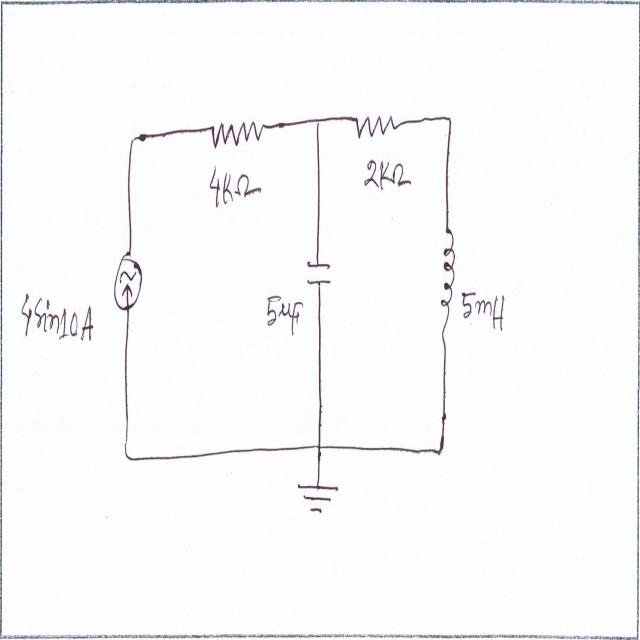 4KΩ
2KΩ
4sin10A
5μF
5mH